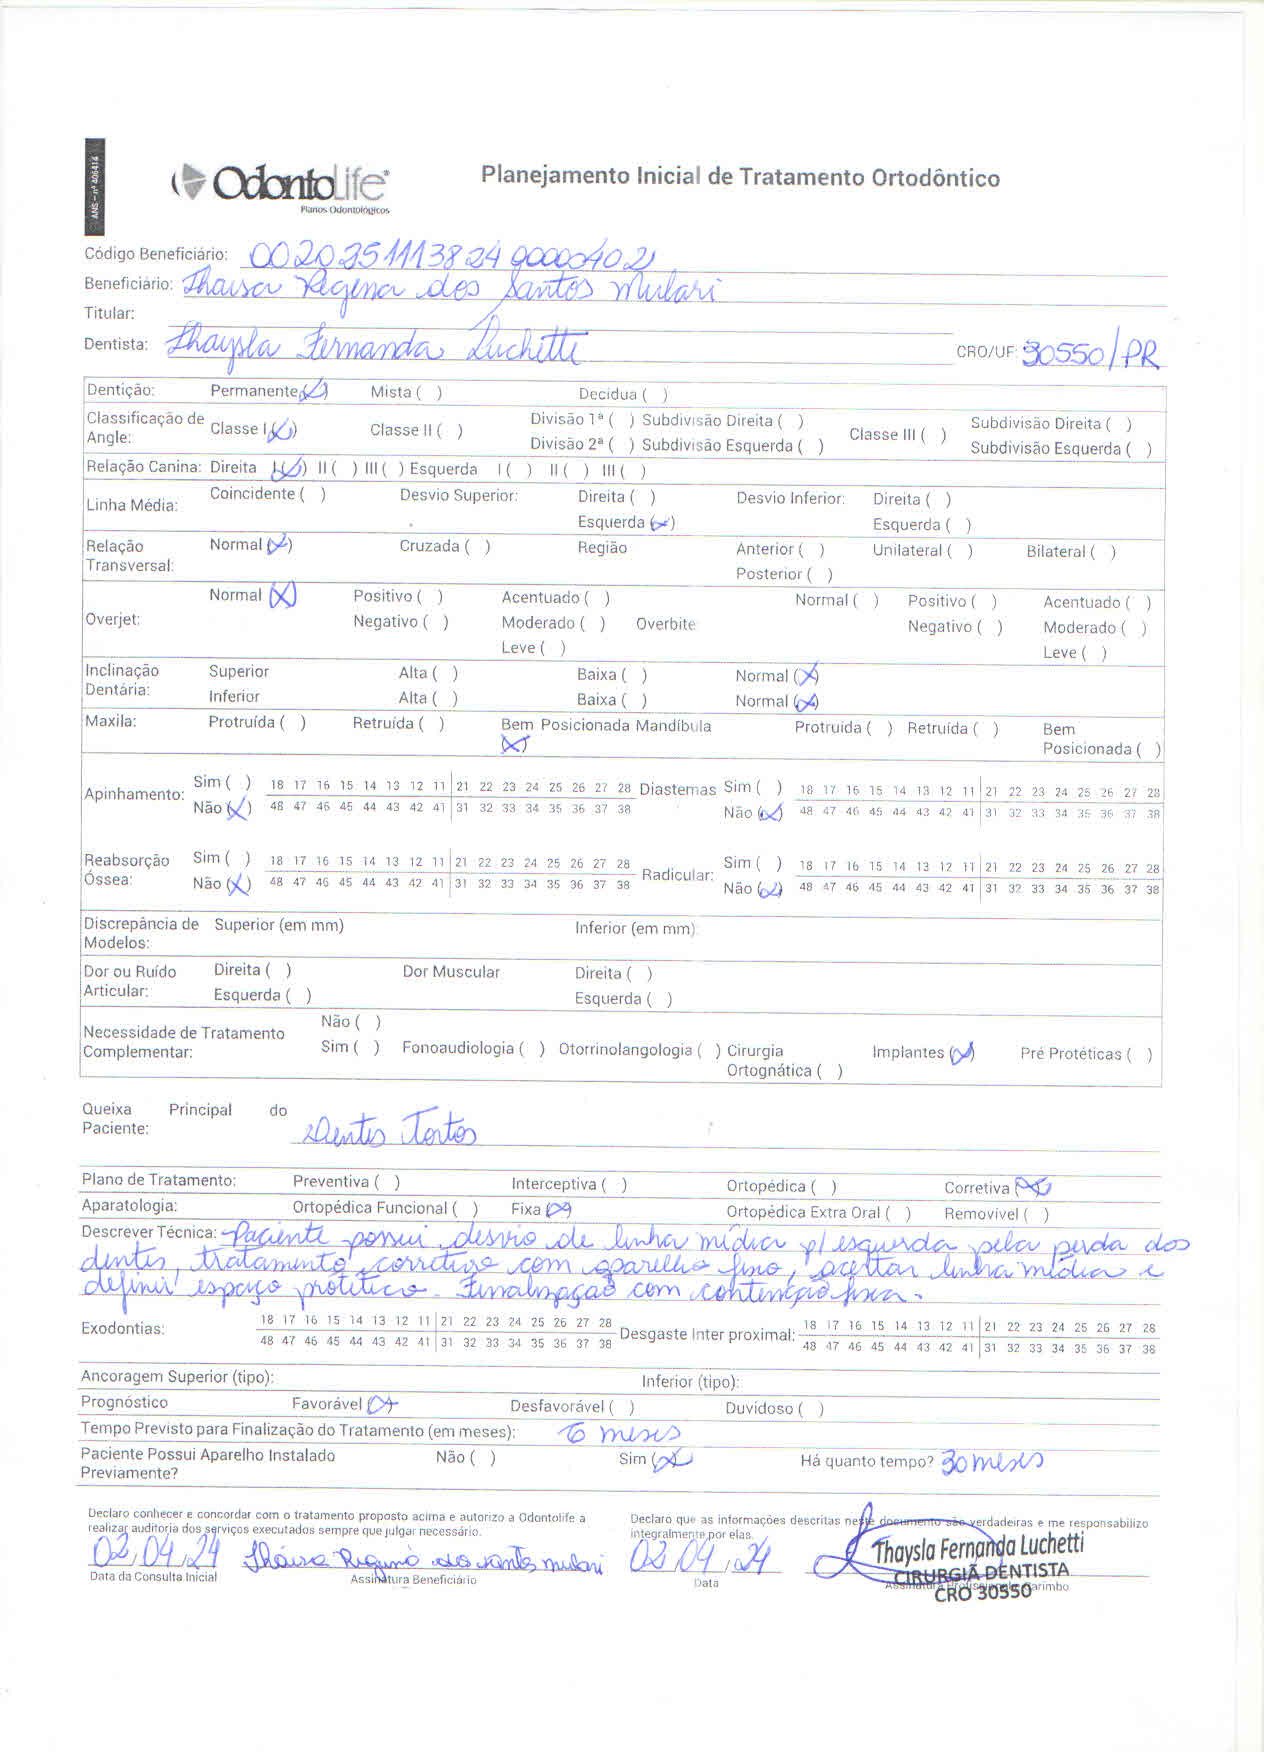 ANS - nº 406414
OdontoLife®
Planos Odontológicos
Planejamento Inicial de Tratamento Ortodôntico
Código Beneficiário: 
Beneficiário: Thaisa Regina dos Santos Mulari
Titular:
Dentista: Thaysla Fernanda Luchetti CRO/UF: 30550/PR
Dentição: Permanente (X) Mista ( ) Decídua ( )
Classificação de Angle: Classe I (X) Classe II ( ) Divisão 1ª ( ) Subdivisão Direita ( ) Divisão 2ª ( ) Subdivisão Esquerda ( ) Classe III ( ) Subdivisão Direita ( ) Subdivisão Esquerda ( )
Relação Canina: Direita I (X) II ( ) III ( ) Esquerda I ( ) II ( ) III ( )
Linha Média: Coincidente ( ) Desvio Superior: Direita ( ) Esquerda (X) Desvio Inferior: Direita ( ) Esquerda ( )
Relação Transversal: Normal (X) Cruzada ( ) Região Anterior ( ) Posterior ( ) Unilateral ( ) Bilateral ( )
Overjet: Normal (X) Positivo ( ) Negativo ( ) Acentuado ( ) Moderado ( ) Leve ( ) Overbite Normal ( ) Positivo ( ) Negativo ( ) Acentuado ( ) Moderado ( ) Leve ( )
Inclinação Dentária: Superior Alta ( ) Baixa ( ) Normal (X)
Inferior Alta ( ) Baixa ( ) Normal (X)
Maxila: Protruída ( ) Retruída ( ) Bem Posicionada (X) Mandíbula Protruída ( ) Retruída ( ) Bem Posicionada ( )
Apinhamento: Sim ( ) 18 17 16 15 14 13 12 11 21 22 23 24 25 26 27 28 Diastemas Sim ( ) 18 17 16 15 14 13 12 11 21 22 23 24 25 26 27 28
Não (X) 48 47 46 45 44 43 42 41 31 32 33 34 35 36 37 38 Não (X) 48 47 46 45 44 43 42 41 31 32 33 34 35 36 37 38
Reabsorção Óssea: Sim ( ) 18 17 16 15 14 13 12 11 21 22 23 24 25 26 27 28 Radicular: Sim ( ) 18 17 16 15 14 13 12 11 21 22 23 24 25 26 27 28
Não (X) 48 47 46 45 44 43 42 41 31 32 33 34 35 36 37 38 Não (X) 48 47 46 45 44 43 42 41 31 32 33 34 35 36 37 38
Discrepância de Modelos: Superior (em mm) Inferior (em mm)
Dor ou Ruído Articular: Direita ( ) Esquerda ( ) Dor Muscular Direita ( ) Esquerda ( )
Necessidade de Tratamento Complementar: Não ( ) Sim ( ) Fonoaudiologia ( ) Otorrinolangologia ( ) Cirurgia Ortognática ( ) Implantes (X) Pré Protéticas ( )
Queixa Principal do Paciente: Dentes Tortos
Plano de Tratamento: Preventiva ( ) Interceptiva ( ) Ortopédica ( ) Corretiva (X)
Aparatologia: Ortopédica Funcional ( ) Fixa (X) Ortopédica Extra Oral ( ) Removivel ( )
Descrever Técnica: Paciente possui desvio de linha média p/ esquerda pela perda dos
dentes, tratamento corretivo com aparelho fixo, aceitar linha média e
definir espaço protético. Finalização com contenção fixa.
Exodontias: 18 17 16 15 14 13 12 11 21 22 23 24 25 26 27 28 Desgaste Inter proximal: 18 17 16 15 14 13 12 11 21 22 23 24 25 26 27 28
48 47 46 45 44 43 42 41 31 32 33 34 35 36 37 38 48 47 46 45 44 43 42 41 31 32 33 34 35 36 37 38
Ancoragem Superior (tipo): Inferior (tipo):
Prognóstico Favorável (X) Desfavorável ( ) Duvidoso ( )
Tempo Previsto para Finalização do Tratamento (em meses): 6 meses
Paciente Possui Aparelho Instalado Previamente? Não ( ) Sim (X) Há quanto tempo? 30 meses
Declaro conhecer e concordar com o tratamento proposto acima e autorizo a Odontolife a
realizar auditoria dos serviços executados sempre que julgar necessário.
Declaro que as informações descritas neste documento são verdadeiras e me responsabilizo
integralmente por elas.
02/04/24 Thaisa Regina dos santos mulari 02/04/24
Thaysla Fernanda Luchetti
CIRURGIÃ DENTISTA
CRO 30550
Data da Consulta Inicial Assinatura Beneficiário Data